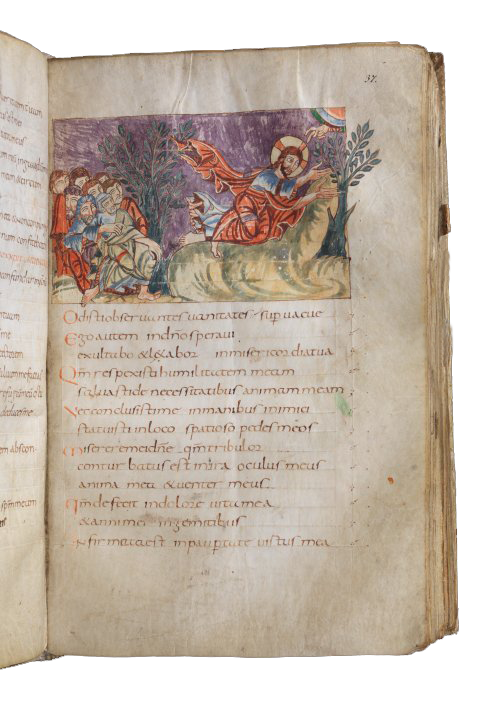 37.
Odisti observantes vanitates supvacue
Ego autem indn̄o speravi
exultabo & lętabor inmisericordia tua
Qm̄ respexisti humilitatem meam
salvasti de necessitatibus animam meam
Nec conclusisti me inmanibus inimici
statuisti inloco spatioso pedes meos
Miserere mei dn̄e qm̄ tribulor
conturbatus est inira oculus meus
anima mea & venter meus
Qm̄ defecit indolore vita mea
& anni mei ingemitibus
Infirmata est inpaupertate virtus mea